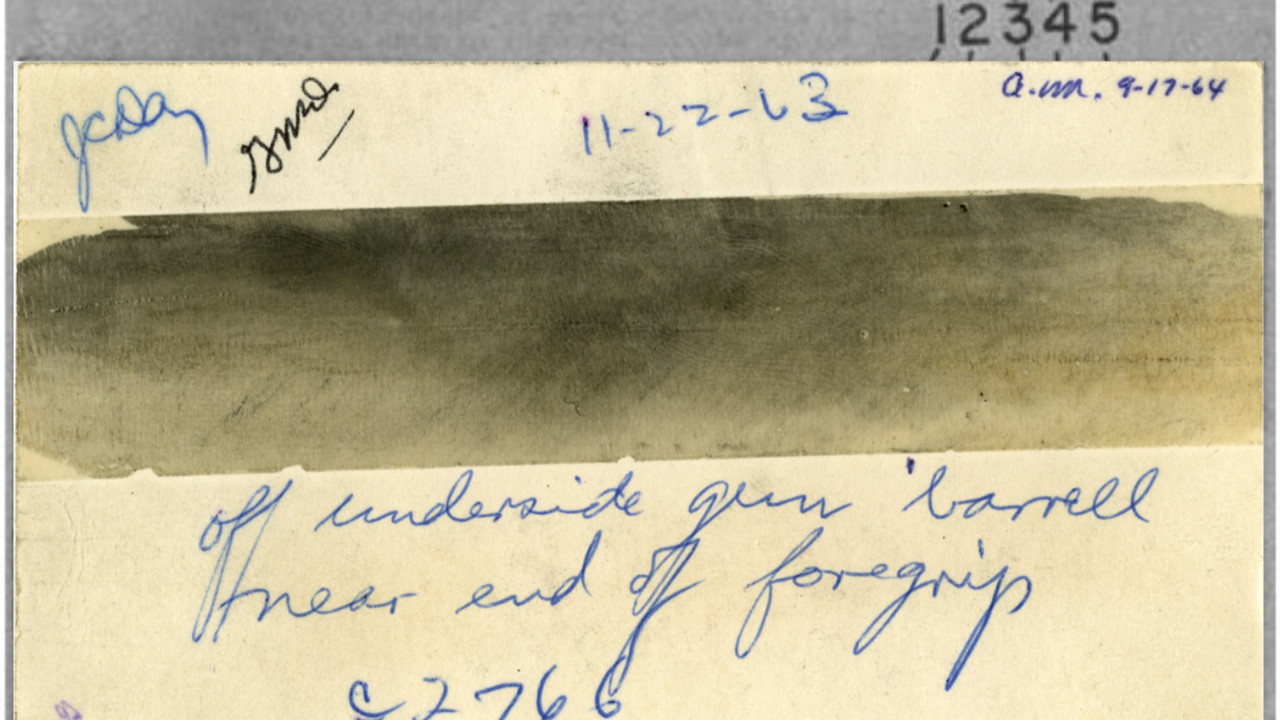 12345
JCDay 11-22-63 a.m. 9-17-64
off underside gun barrell
near end of foregrip
C2766